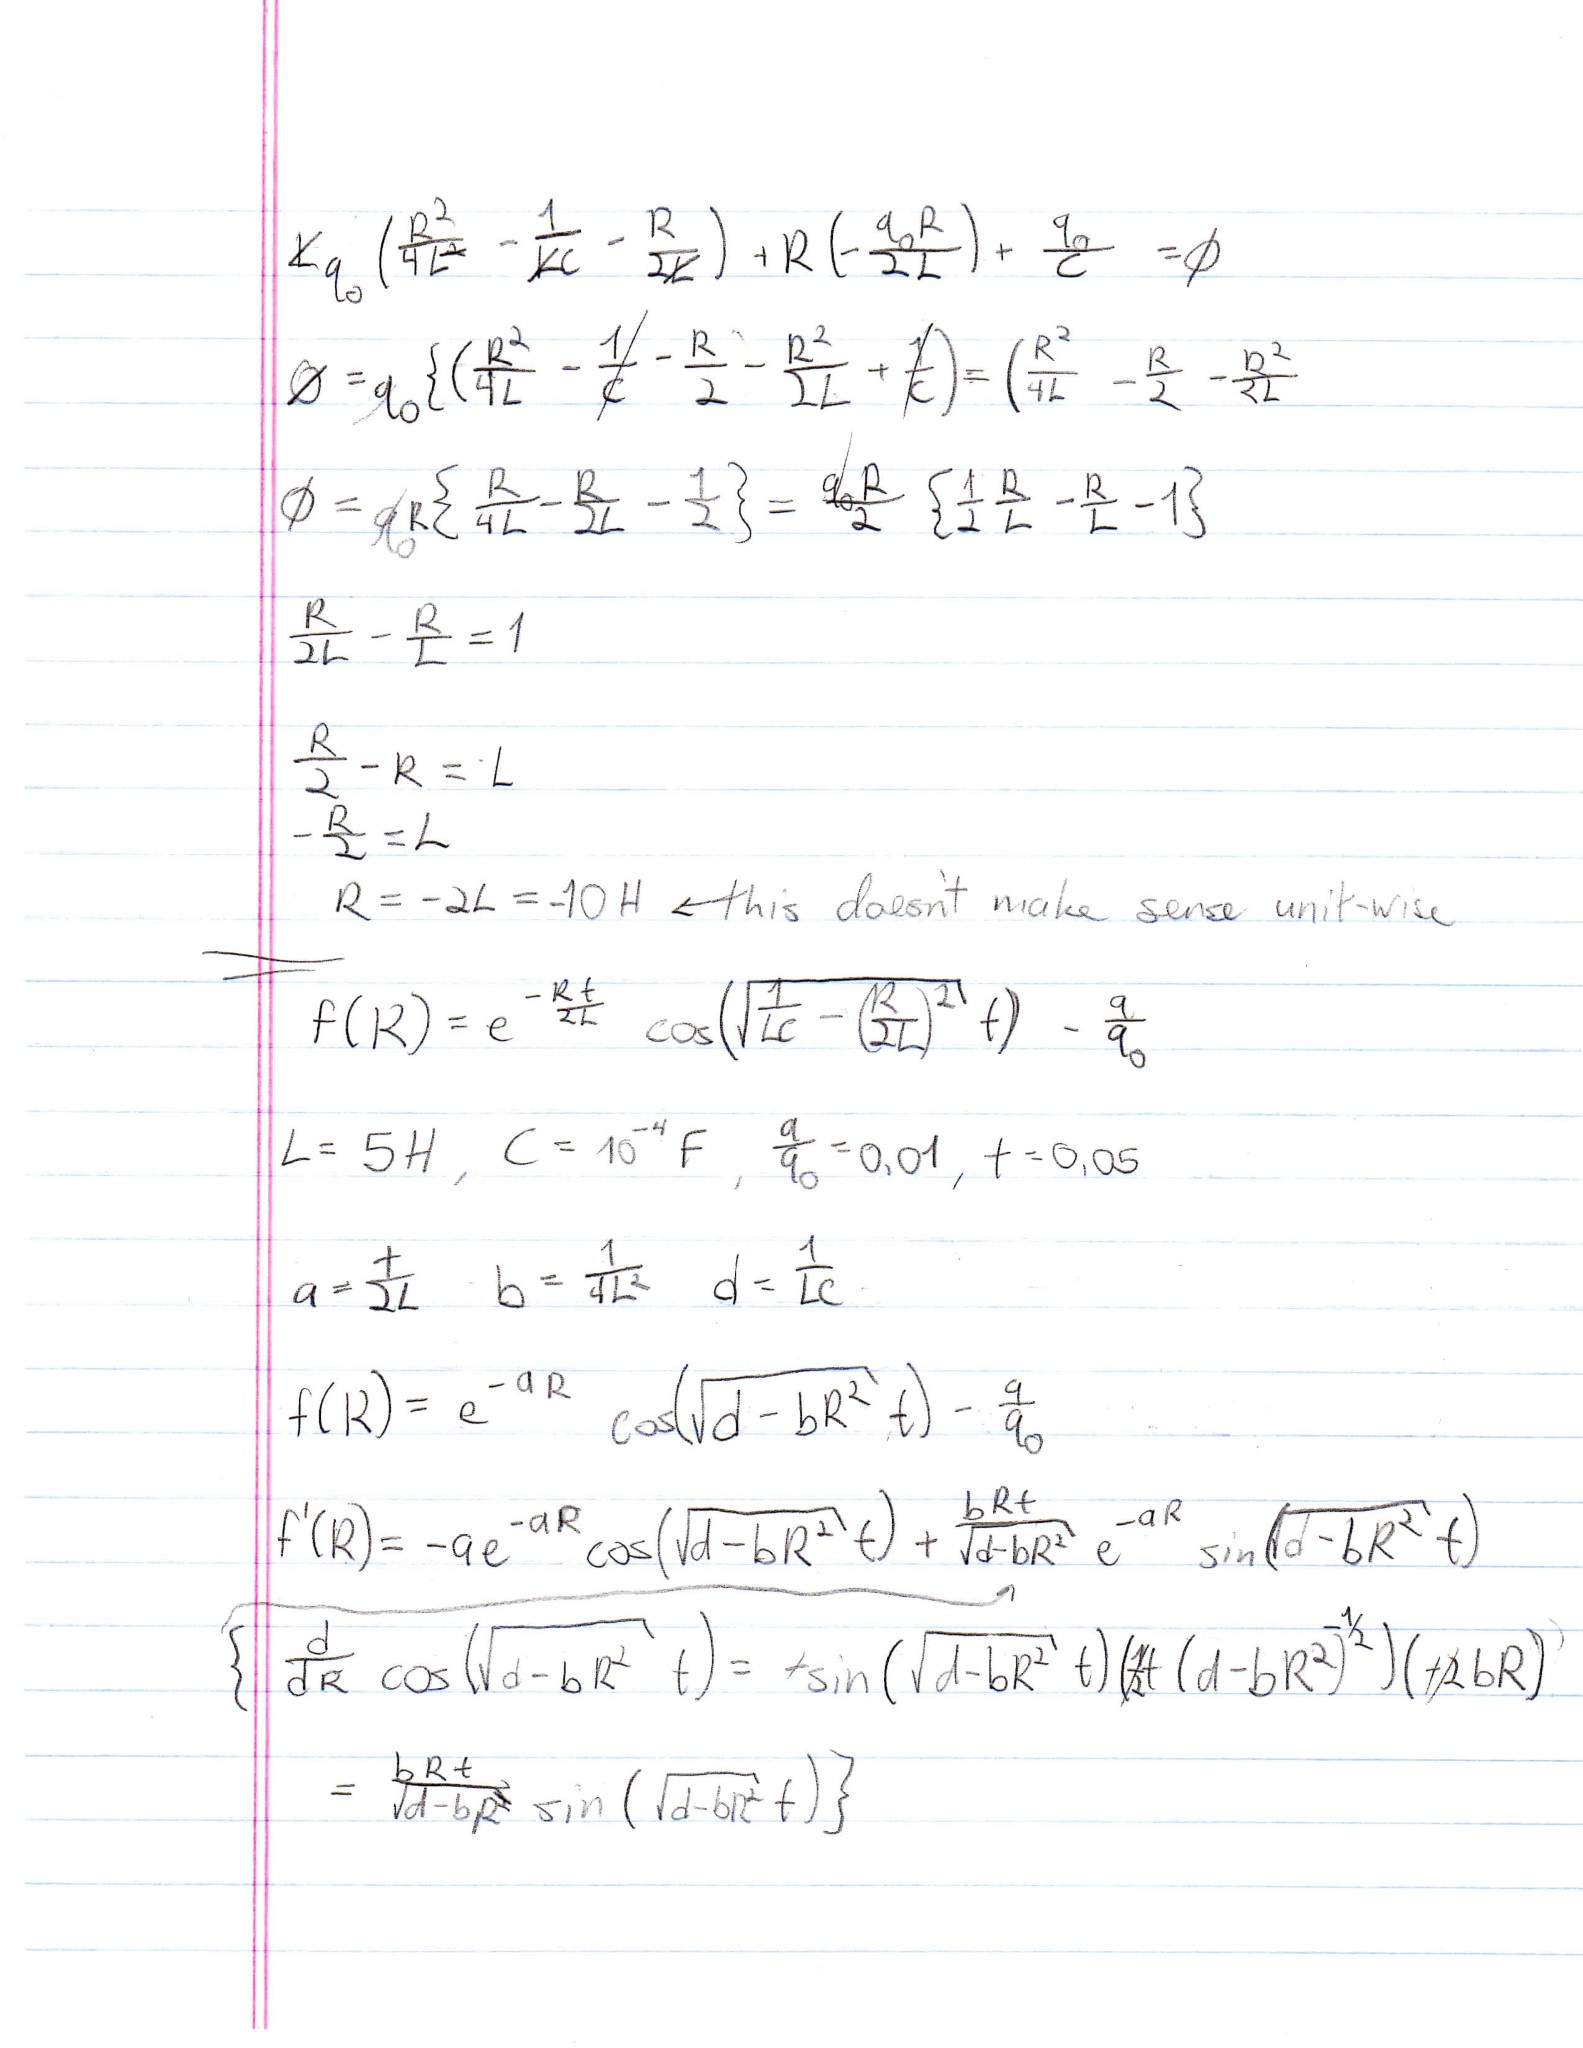 Lq₀ (R²/4L² - 1/LC - R/2L) + R(-q₀R/2L) + q₀/C = ∅
∅ = q₀{(R²/4L - 1/C - R/2 - R²/2L + 1/C) = (R²/4L - R/2 - R²/2L
∅ = q₀R{R/4L - R/2L - 1/2} = q₀R/2 {1/2 R/L - R/L - 1}
R/2L - R/L = 1
R/2 - R = L
-R/2 = L
R = -2L = -10H ← this doesn't make sense unit-wise
f(R) = e^(-Rt/2L) cos(√(1/LC - (R/2L)²) t) - q/q₀
L = 5H, C = 10⁻⁴ F, q/q₀ = 0,01, t = 0,05
a = t/2L b = 1/4L² d = 1/LC
f(R) = e^(-aR) cos(√(d - bR²) t) - q/q₀
f'(R) = -ae^(-aR) cos(√(d-bR²) t) + bRt/√(d-bR²) e^(-aR) sin(√(d-bR²) t)
{ d/dR cos(√(d-bR²) t) = +sin(√(d-bR²) t)(1/2 t (d-bR²)^(-1/2))(+2bR)
= bRt/√(d-bR²) sin(√(d-bR²) t)}